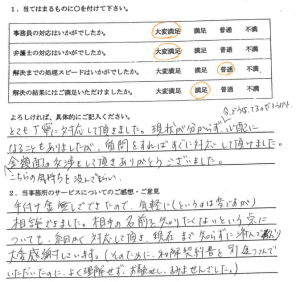 1. 当てはまるものに○を付けて下さい。
事務員の対応はいかがでしたか。 大変満足 満足 普通 不満
弁護士の対応はいかがでしたか。 大変満足 満足 普通 不満
解決までの処理スピードはいかがでしたか。 大変満足 満足 普通 不満
解決の結果にはご満足いただけましたか。 大変満足 満足 普通 不満
よろしければ、具体的にご記入ください。
とても丁寧に対応して頂きました。現状が分からず心配に
なることもありましたが、質問をすればすぐに対応して頂けました。
金銭面の交渉もして頂きありがとうございました。
こちらの気持ちを汲んで
2. 当事務所のサービスについてのご感想・ご意見
手付け金無しでできたので、気軽に(というのは
相談できました。相手の名前を知りたくないという点に
ついても、細かく対応して頂き、現在まで知らずに済んで
大変感謝しています。(そのために、和解契約書を
いただいたのに、よく理解せず、お騒せし、すみませんでした。)